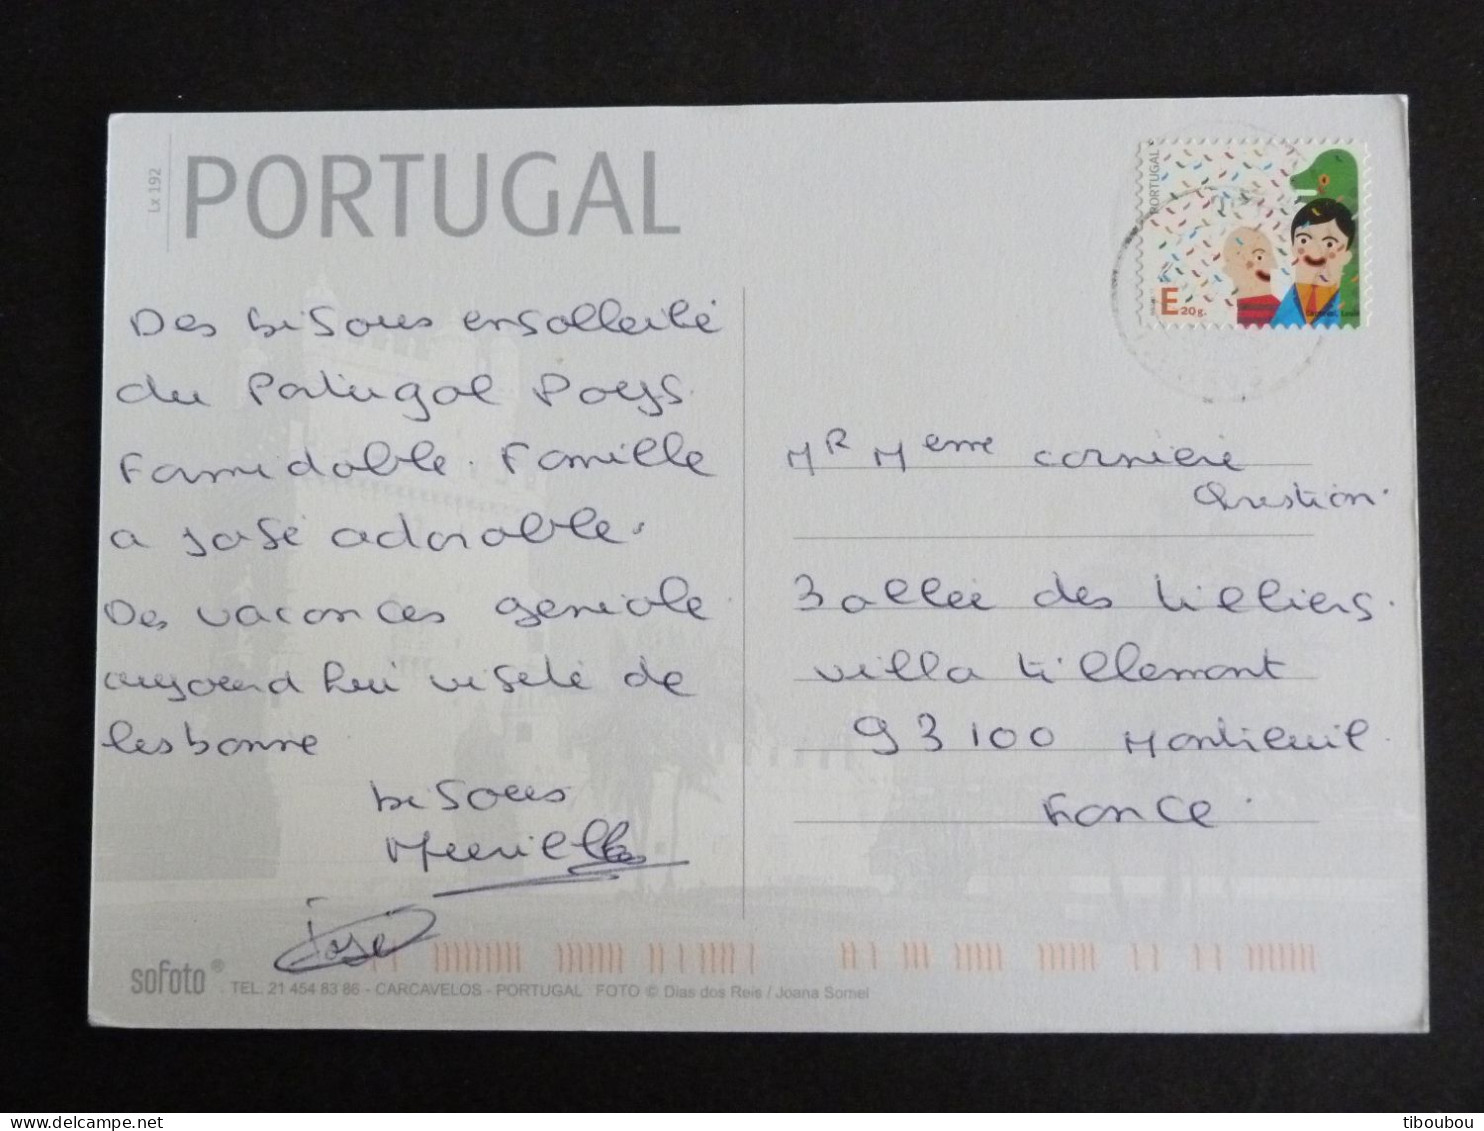 Lx 192
PORTUGAL
PORTUGAL
E20g.
Des bisous ensolleilé
du Portugal Pays
Formidable. Famille
a José adorable.
Des vacances geniale
aujourd hui visite de
lisbonne
bisous
Murielle
José
Mr Meme Cornière
Christian.
3 allée des tilliers.
villa tillemont
93100 Montreuil
France.
sofoto® TEL. 21 454 83 86 - CARCAVELOS - PORTUGAL FOTO © Dias dos Reis / Joana Somel
tiboubou